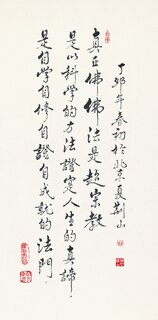 真正佛佛法是超宗教
是以科学的方法證實人生的真諦
是自学自修自證自成就的法門
丁卯年春初於北京夏荆山